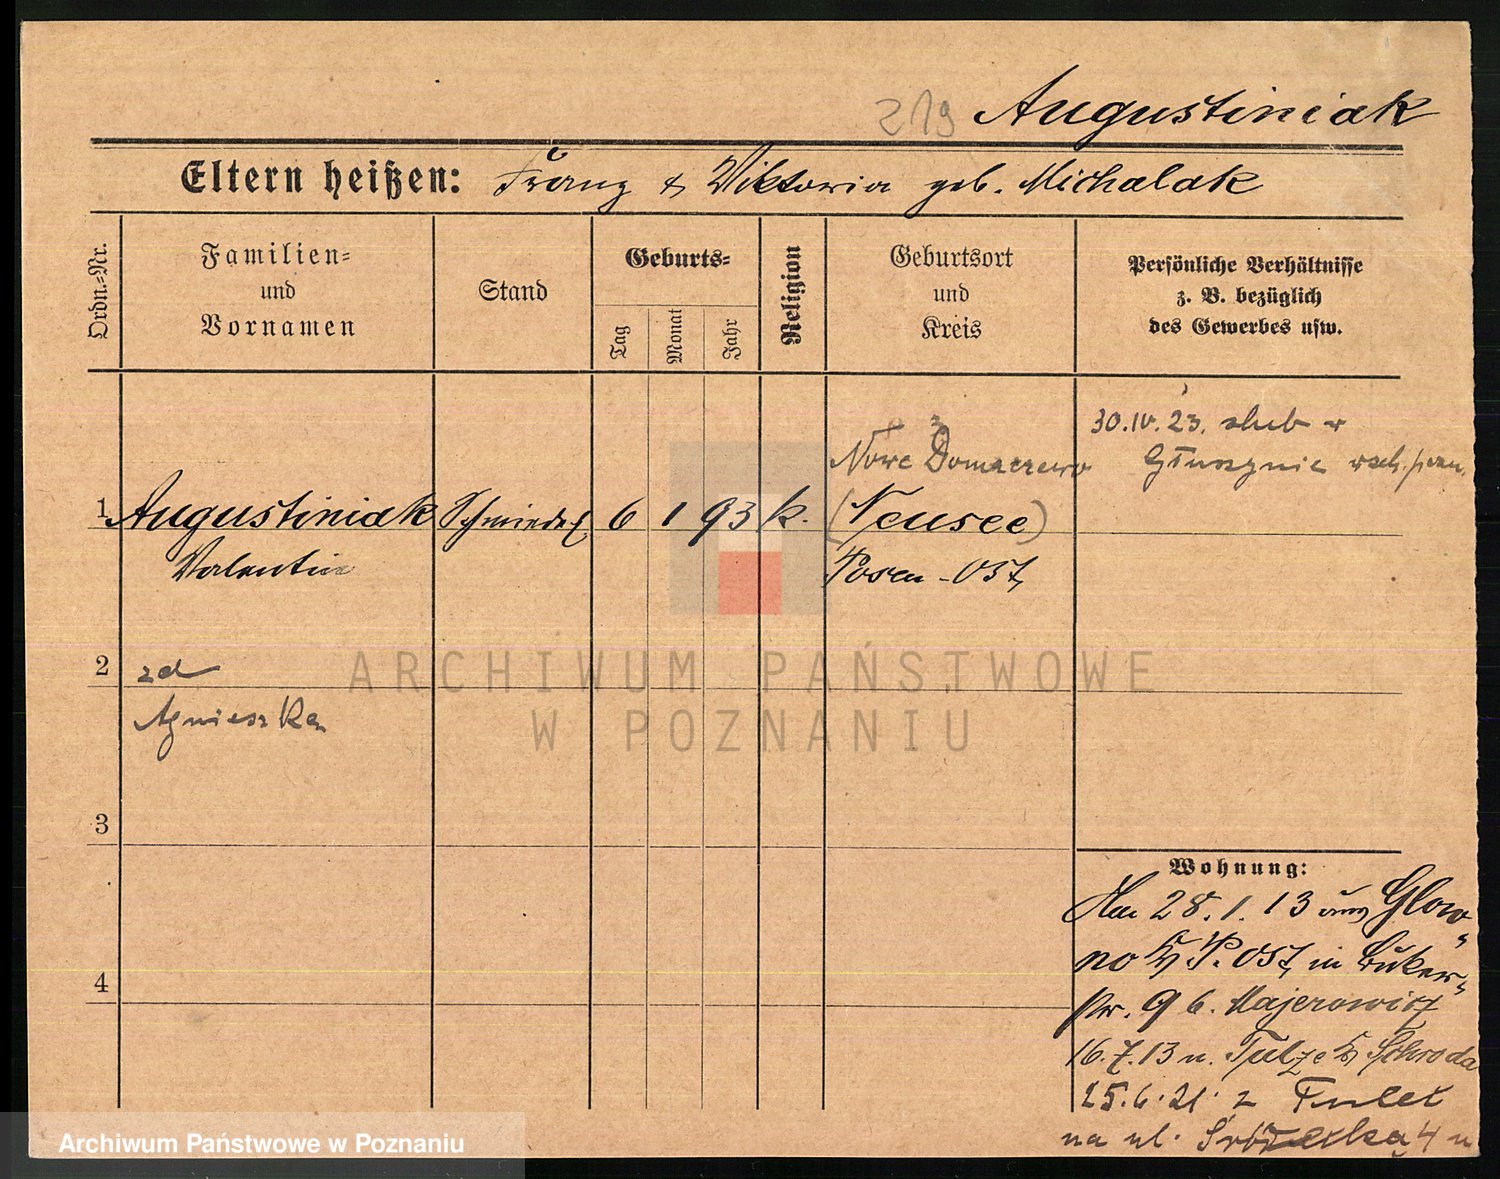 219 Augustiniak
Eltern heißen: Franz & Viktoria geb. Michalak
Ordn.-Nr.
Familien-
und
Vornamen
Stand
Geburts-
Tag
Monat
Jahr
Religion
Geburtsort
und
Kreis
Persönliche Verhältnisse
z. B. bezüglich
des Gewerbes usw.
30.IV.23. slub w
Głuszynie wsch. pozn.
Nowe Domaczewo
1 Augustiniak Schmiedeg. 6 1 93 k. (Neusee)
Valentin Posen-Ost
2 zd
Agnieszka
3
4
Wohnung:
Am 28.1.13 aus Glow-
no Kr. P. Ost, in Buker-
str. 9 b. Majerowicz
16.7.13 n. Tulze Kr. Schroda
25.6.21 z Tulec
na ul. 4
ARCHIWUM PAŃSTWOWE
W POZNANIU
Archiwum Państwowe w Poznaniu